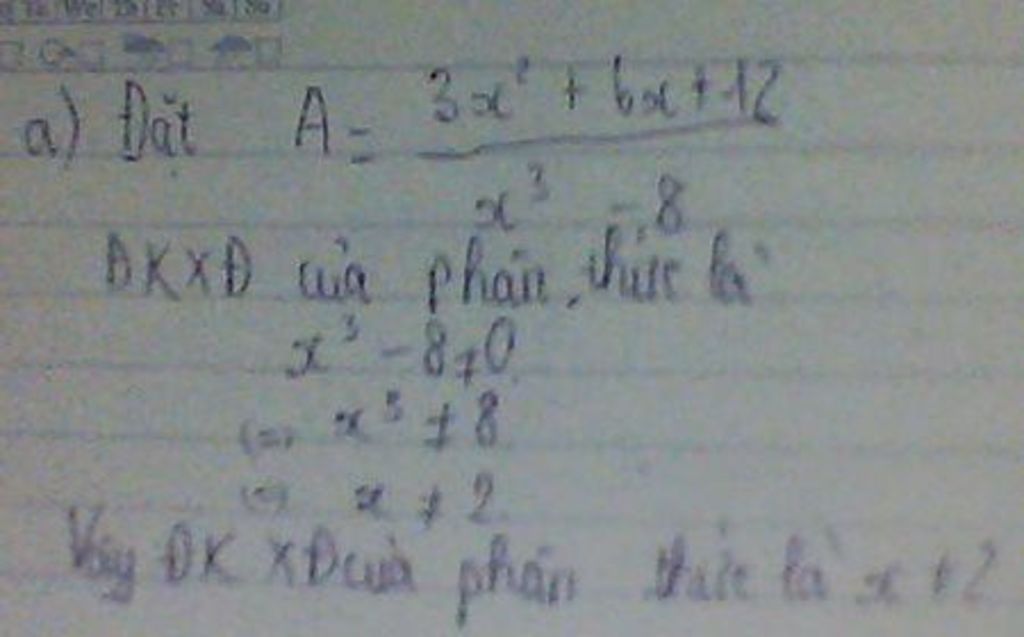 a) Đặt A = 3x² + 6x + 12
x³ - 8
ĐKXĐ của phân thức là
x³ - 8 ≠ 0
(=) x³ ≠ 8
(=) x ≠ 2
Vậy ĐKXĐ của phân thức là x ≠ 2